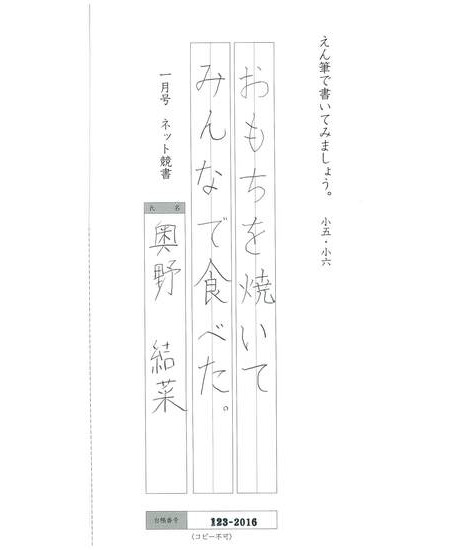 えん筆で書いてみましょう。 小五・小六
おもちを焼いて
みんなで食べた。
一月号 ネット競書
氏名
奥野 結菜
台帳番号 123-2016
(コピー不可)